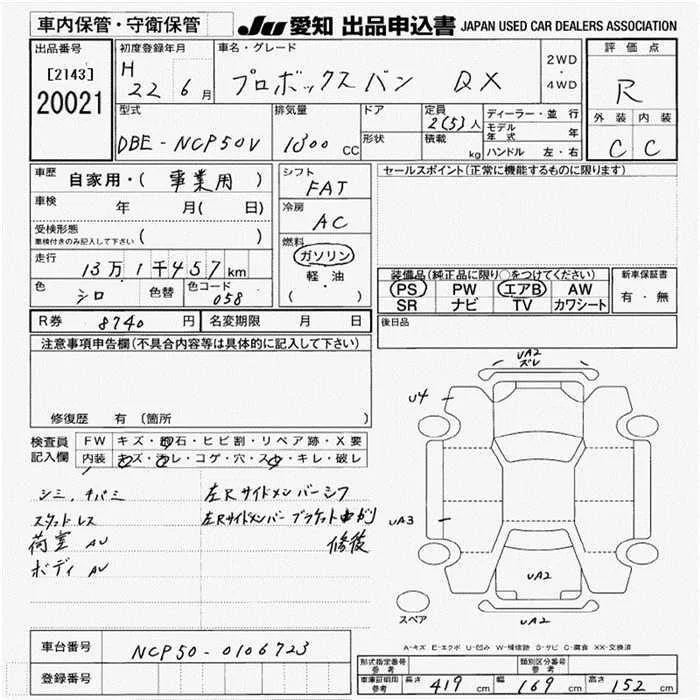 車内保管・守衛保管
JU 愛知 出品申込書 JAPAN USED CAR DEALERS ASSOCIATION
出品番号 [2143] 20021
初度登録年月 H 22 6月
車名・グレード プロボックスバン DX
2WD・4WD
評価点 R
外装 内装
C C
型式 DBE-NCP50V
排気量 1300 CC
ドア
形状
定員 2(5)人
積載 kg
ディーラー・並行
モデル年式 年
ハンドル 左・右
車歴 自家用・( 事業用 )
車検 年 月( 日)
受検形態 ( )
車検付きのみ記入して下さい
走行 13万1千457km
色 シロ 色替 色コード 058
シフト FAT
冷房 AC
燃料 ガソリン
軽・油
( ・ )
セールスポイント(正常に機能するものに限ります)
装備品(純正品に限り○をつけてください)
PS PW エアB AW
SR ナビ TV カワシート
新車保証書
有・無
R券 8740 円 名変期限 月 日
後日品
注意事項申告欄(不具合内容等は具体的に記入して下さい)
修復歴 有 〔箇所 〕
検査員記入欄
FW キズ・飛石・ヒビ割・リペア跡・X要
内装 キズ・汚レ・コゲ・穴・スレ・キレ・破レ
シミ、キバミ
左Rサイドメンバーシワ
スタッドレス
左Rサイドメンバーブラケット曲がり
荷室 AU
修後
ボディ AU
UA2
ズレ
U4
UA3
UA2
UA2
スペア
A-キズ E-エクボ U-凹み W-補修跡 S-サビ C-腐食 XX-交換済
車台番号 NCP50-0106723
登録番号
形式指定番号 参考
類別区分番号 参考
車庫証明用 参考 長さ 419 cm 幅 169 cm 高さ 152 cm